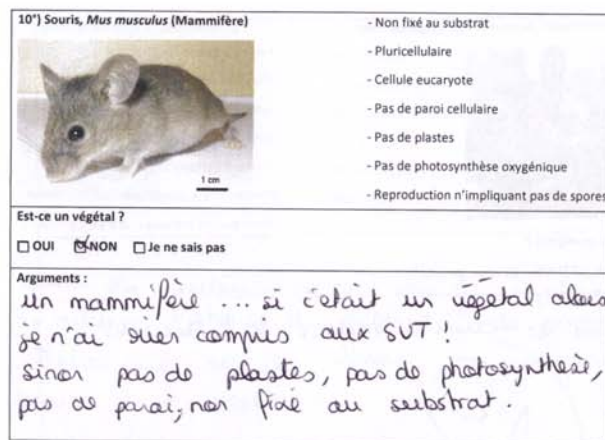 10°) Souris, Mus musculus (Mammifère)
- Non fixé au substrat
- Pluricellulaire
- Cellule eucaryote
- Pas de paroi cellulaire
- Pas de plastes
- Pas de photosynthèse oxygénique
- Reproduction n'impliquant pas de spores
1 cm
Est-ce un végétal ?
☐ OUI ☒ NON ☐ Je ne sais pas
Arguments :
un mammifère ... si c'était un végétal alors
je n'ai rien compris aux SVT !
sinon pas de plastes, pas de photosynthèse,
pas de paroi, non fixé au substrat.